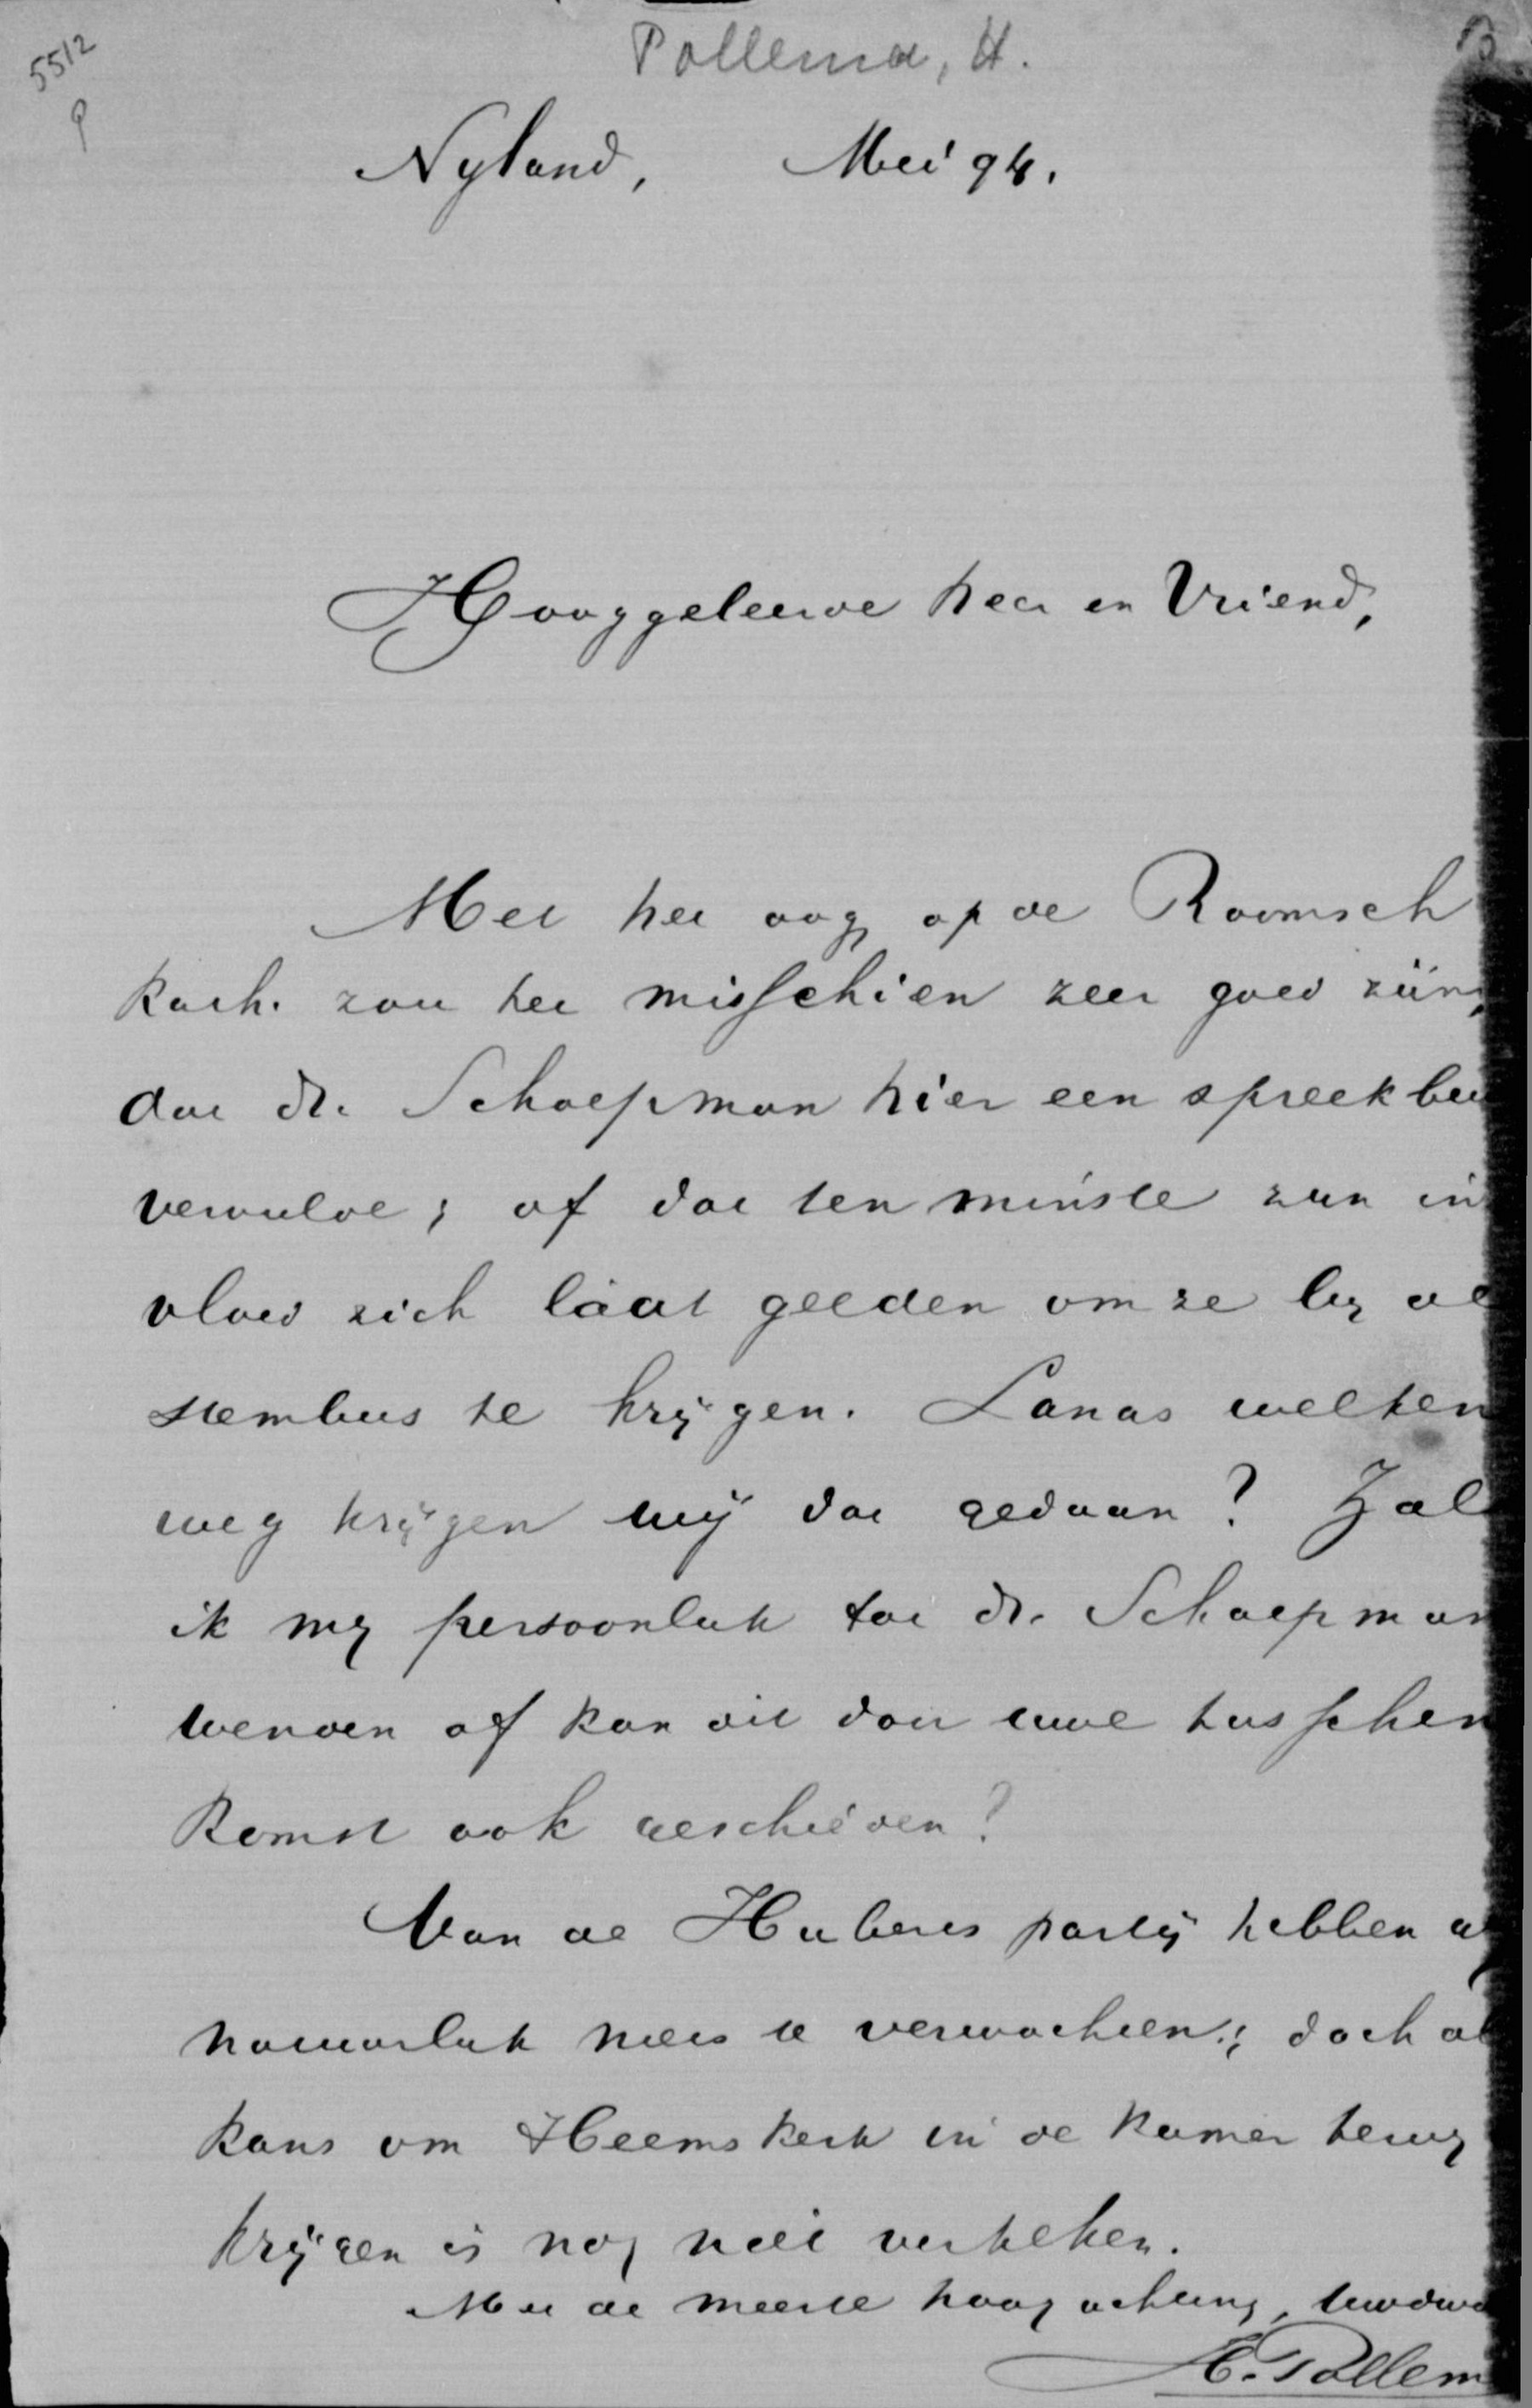 5512
P
Pollema, H.
B
Nyland, Mei 94.
Hooggeleerde heer en Vriend,
Met het oog op de Roomsch
Kath. zou het misschien zeer goed zijn,
dat dr. Schaepman hier een spreekbeu
vervulde; of dat ten minste zijn in
vloed zich láát gelden om ze by de
stembus te krijgen. Langs welken
weg krijgen wij dat gedaan? Zal
ik my persoonlijk tot dr. Schaepman
wenden of kan dit door uwe tusschen
komst ook geschieden?
Van de Hubers partij hebben
natuurlijk niets te verwachten; doch de
kans om Heemskerk in de Kamer terug
krijgen is nog niet verkeken.
Met de meeste hoogachting,
H. Pollem